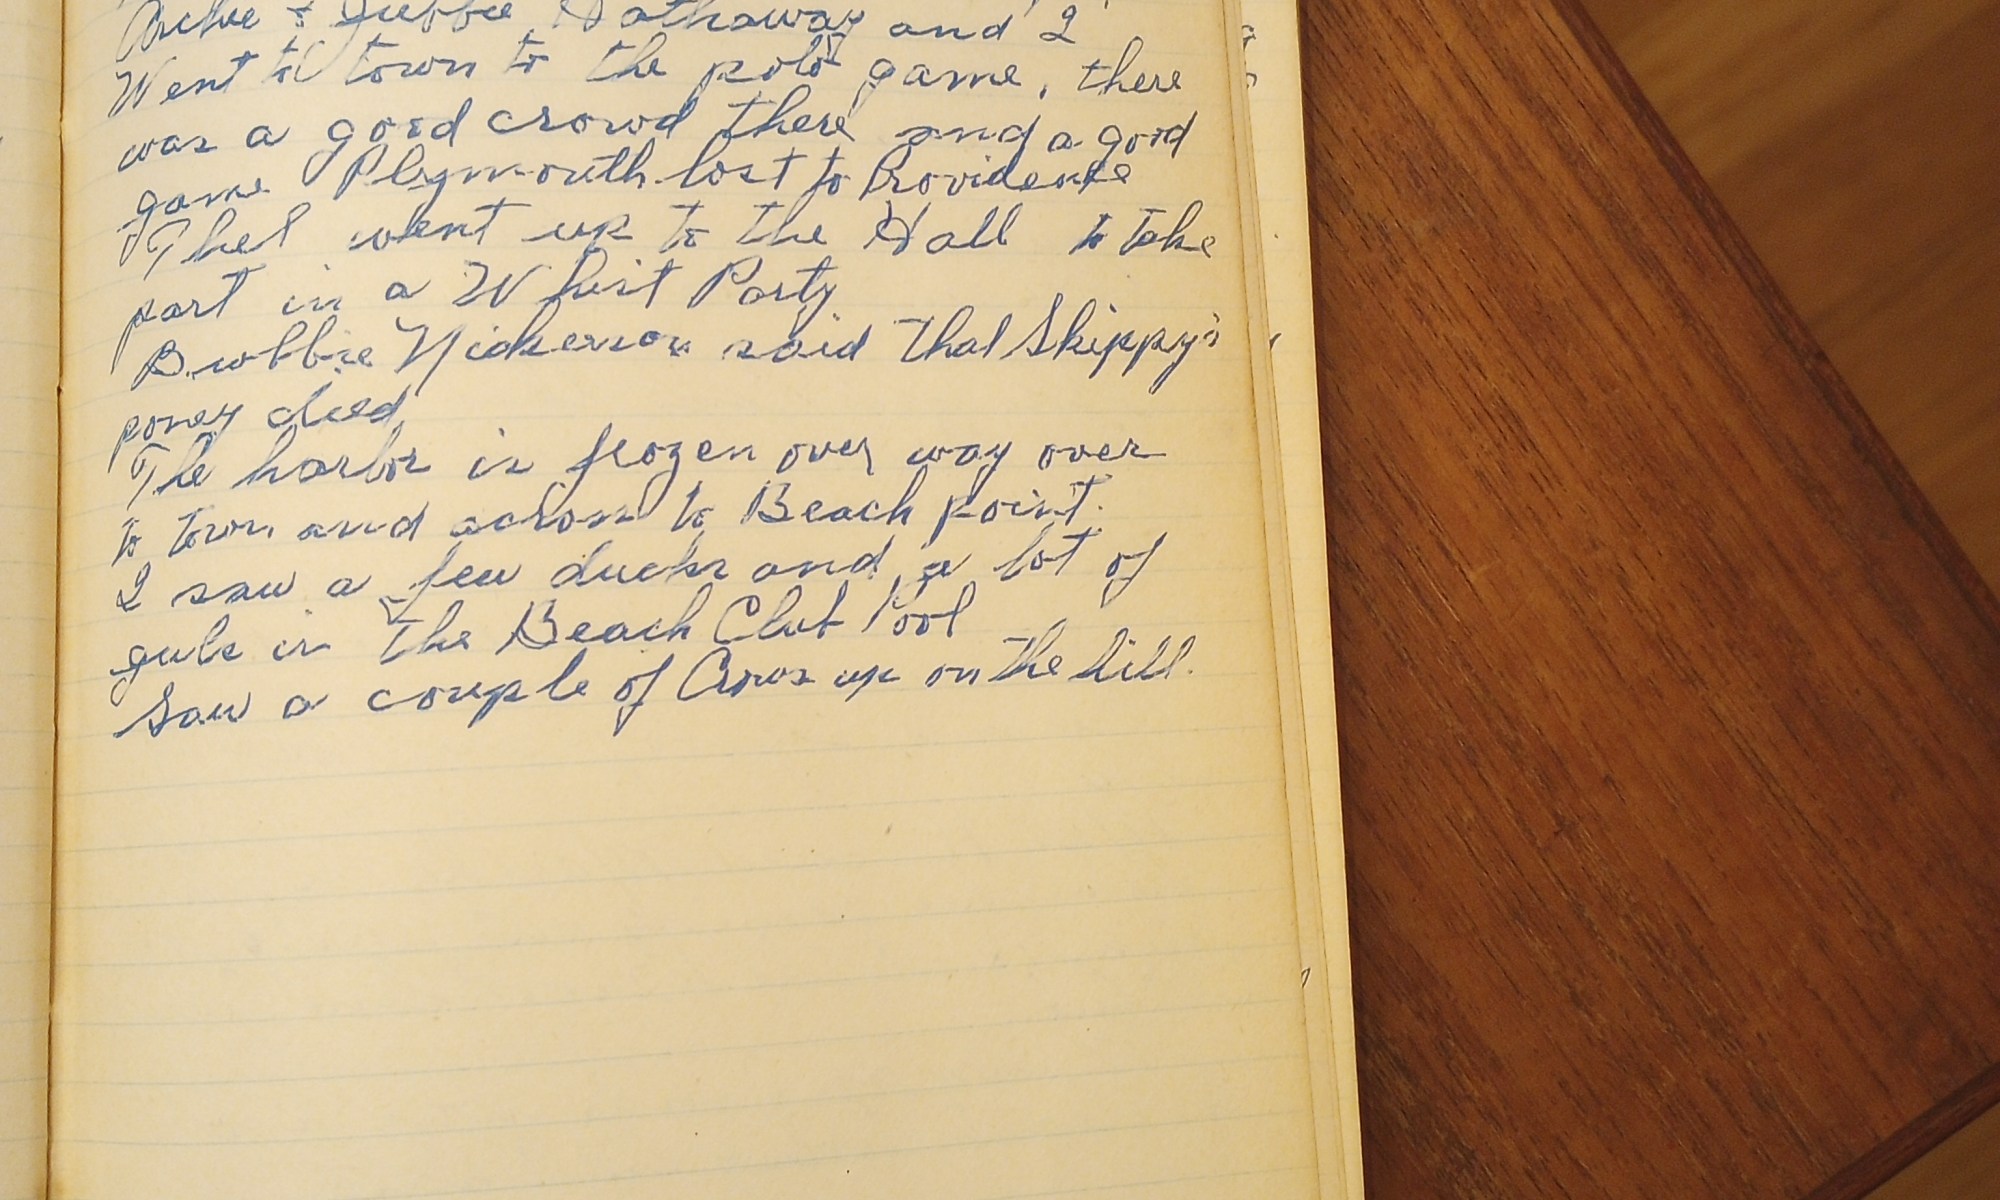 Hathaway and I
Went to town to the polo game, there
was a good crowd there and a good
game Plymouth lost to Providence
Thel went up to the Hall to take
part in a Whist Party
Bubbie Nickerson said that Skippy's
poney died
The harbor is frozen over way over
to town and across to Beach point.
I saw a few ducks and a lot of
guls in the Beach Club Pool
Saw a couple of Crows up on the hill.